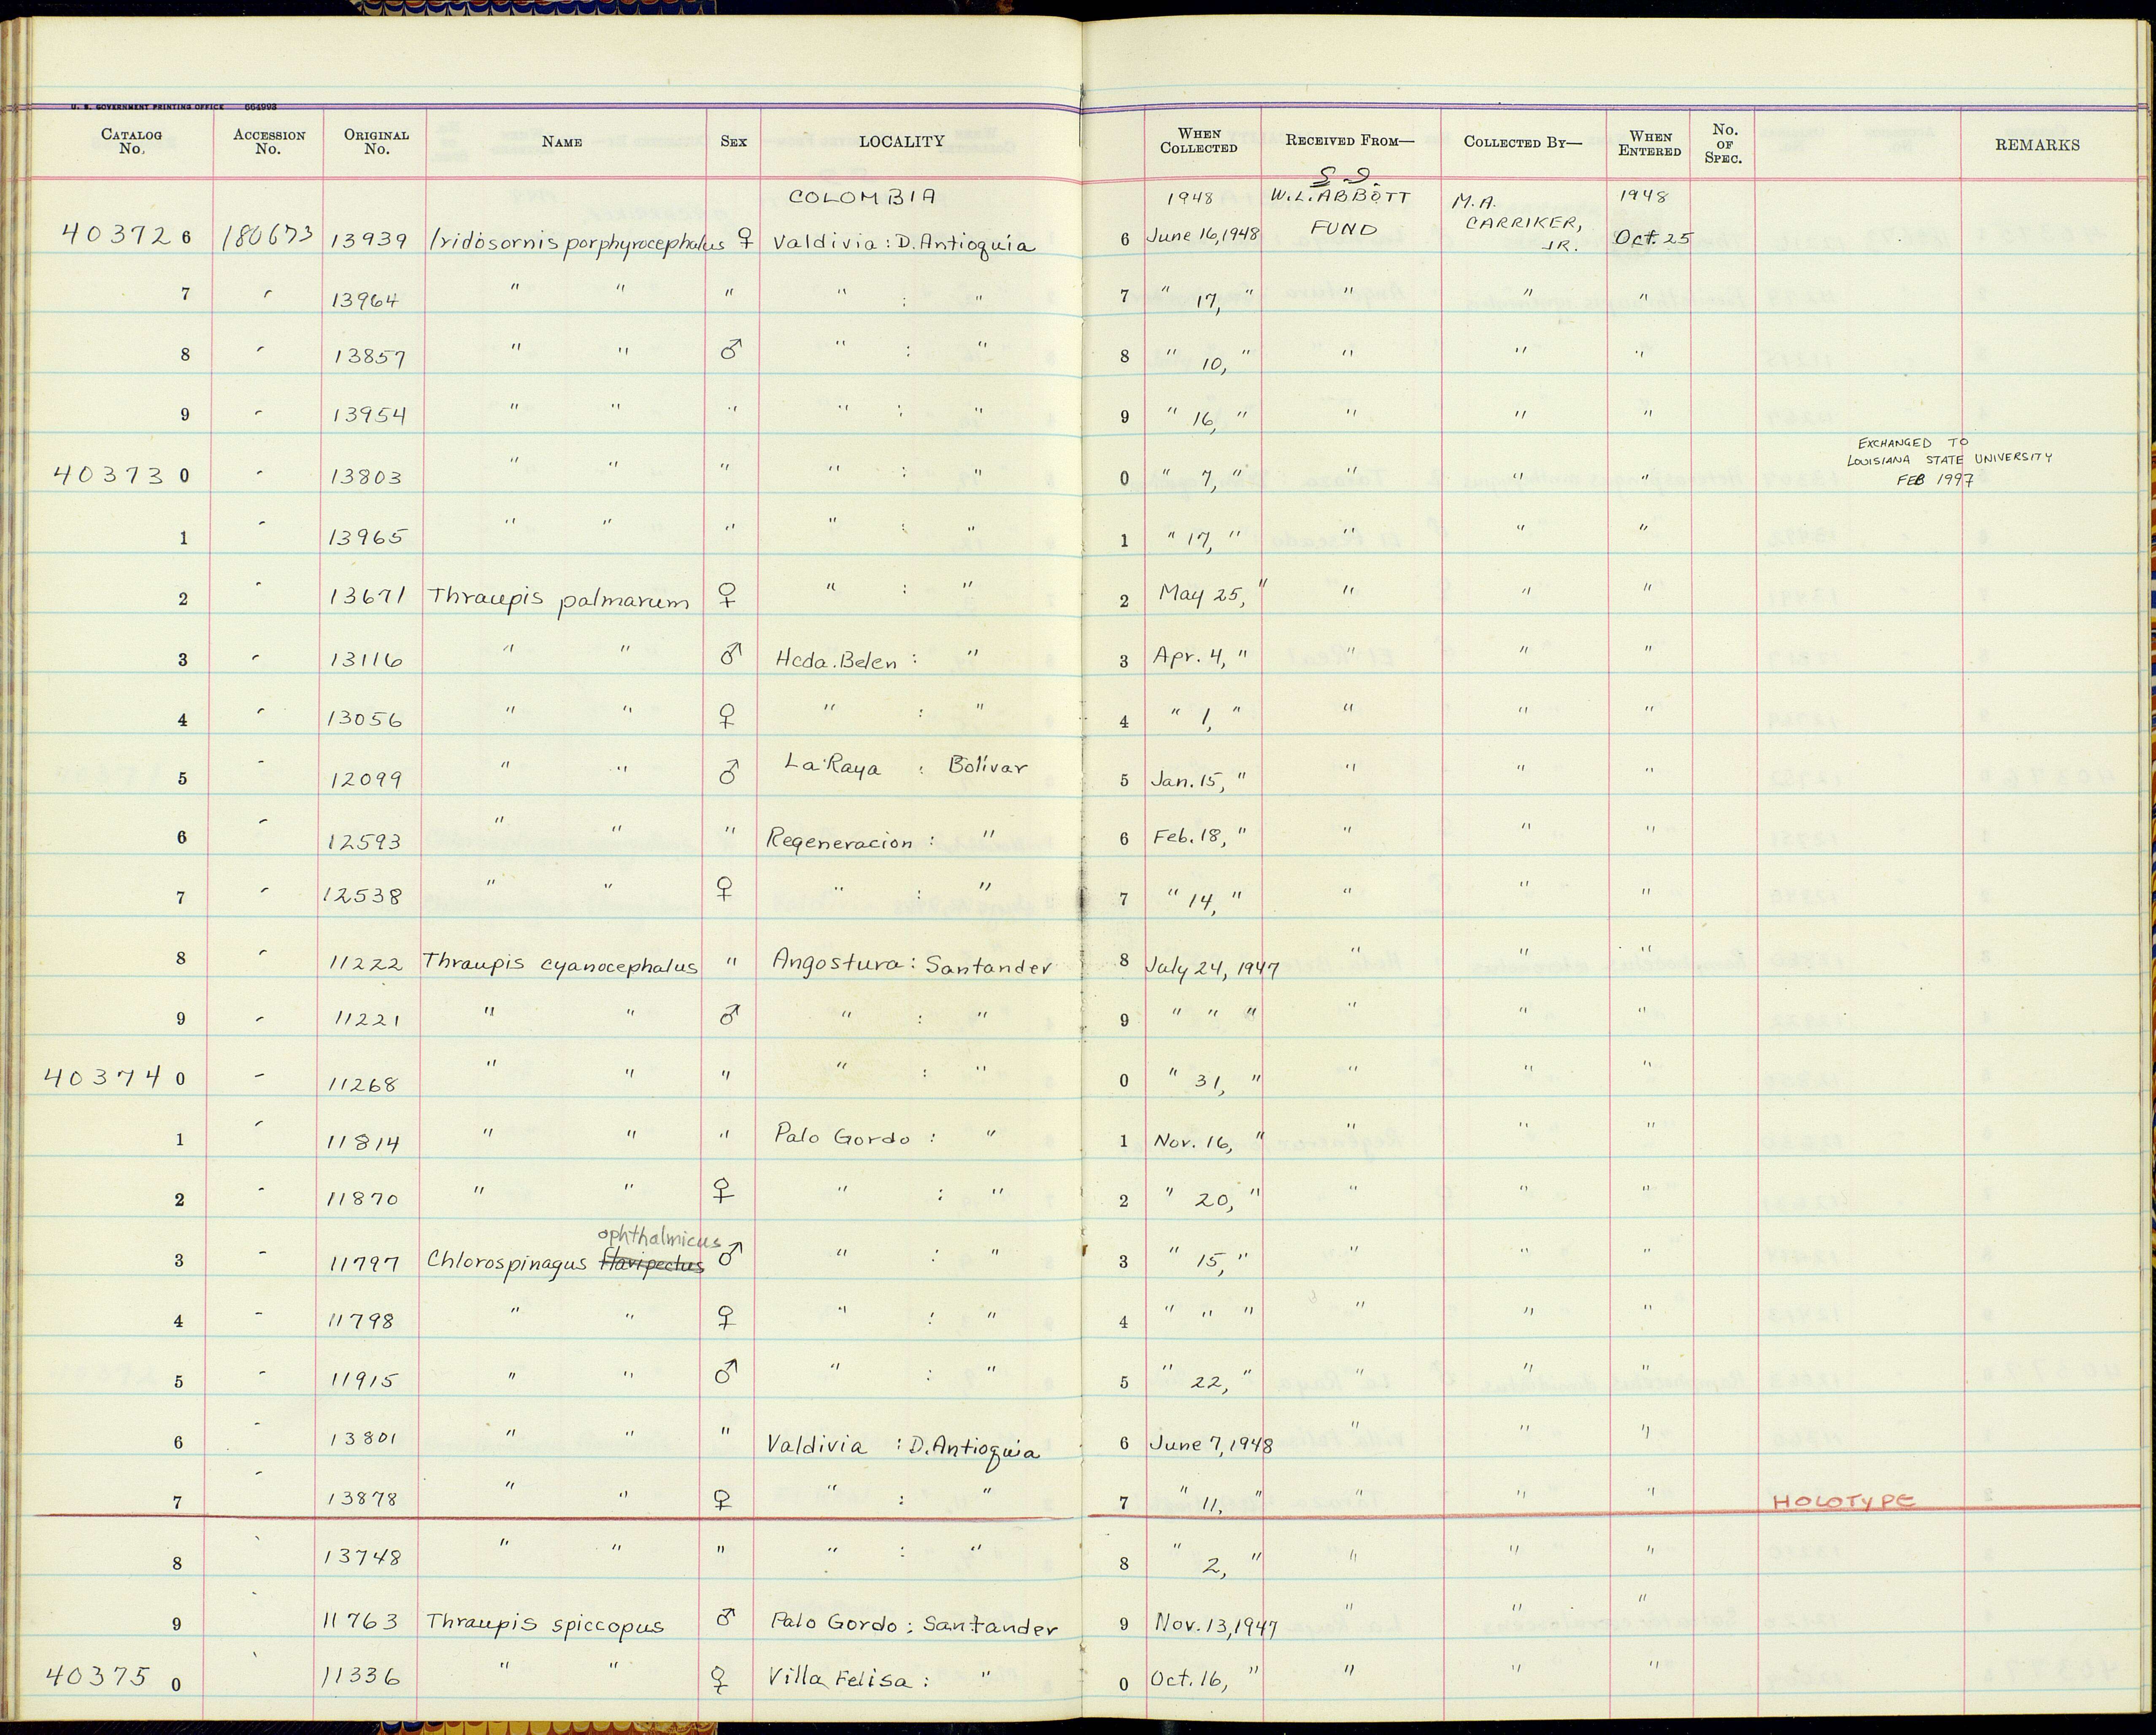 U. S. GOVERNMENT PRINTING OFFICE 664993
CATALOG No. ACCESSION No. ORIGINAL No. NAME SEX LOCALITY WHEN COLLECTED RECEIVED FROM— COLLECTED BY— WHEN ENTERED No. OF SPEC. REMARKS
COLOMBIA 1948 W.L. ABBOTT FUND M.A. CARRIKER, JR. 1948
403726 180673 13939 Iridosornis porphyrocephalus ♀ Valdivia : D. Antioquia 6 June 16, 1948 Oct. 25
7 " 13964 " " " " : " 7 " 17, " " " "
8 " 13857 " " ♂ " : " 8 " 10, " " " "
9 " 13954 " " " " : " 9 " 16, " " " "
403730 " 13803 " " " " : " 0 " 7, " " " " EXCHANGED TO LOUISIANA STATE UNIVERSITY FEB 1997
1 " 13965 " " " " : " 1 " 17, " " " "
2 " 13671 Thraupis palmarum ♀ " : " 2 May 25, " " " "
3 " 13116 " " ♂ Hcda. Belen : " 3 Apr. 4, " " " "
4 " 13056 " " ♀ " : " 4 " 1, " " " "
5 " 12099 " " ♂ La Raya : Bolívar 5 Jan. 15, " " " "
6 " 12593 " " " Regeneracion : " 6 Feb. 18, " " " "
7 " 12538 " " ♀ " : " 7 " 14, " " " "
8 " 11222 Thraupis cyanocephalus " Angostura : Santander 8 July 24, 1947 " " "
9 " 11221 " " ♂ " : " 9 " " " " " "
403740 " 11268 " " " " : " 0 " 31, " " " "
1 " 11814 " " " Palo Gordo : " 1 Nov. 16, " " " "
2 " 11870 " " ♀ " : " 2 " 20, " " " "
ophthalmicus
3 " 11797 Chlorospinagus flavipectus ♂ " : " 3 " 15, " " " "
4 " 11798 " " ♀ " : " 4 " " " " " "
5 " 11915 " " ♂ " : " 5 " 22, " " " "
6 " 13801 " " " Valdivia : D. Antioquia 6 June 7, 1948 " " "
7 " 13878 " " ♀ " : " 7 " 11, " " " " HOLOTYPE
8 " 13748 " " " " : " 8 " 2, " " " "
9 " 11763 Thraupis spiccopus ♂ Palo Gordo : Santander 9 Nov. 13, 1947 " " "
403750 " 11336 " " ♀ Villa Felisa : " 0 Oct. 16, " " " "